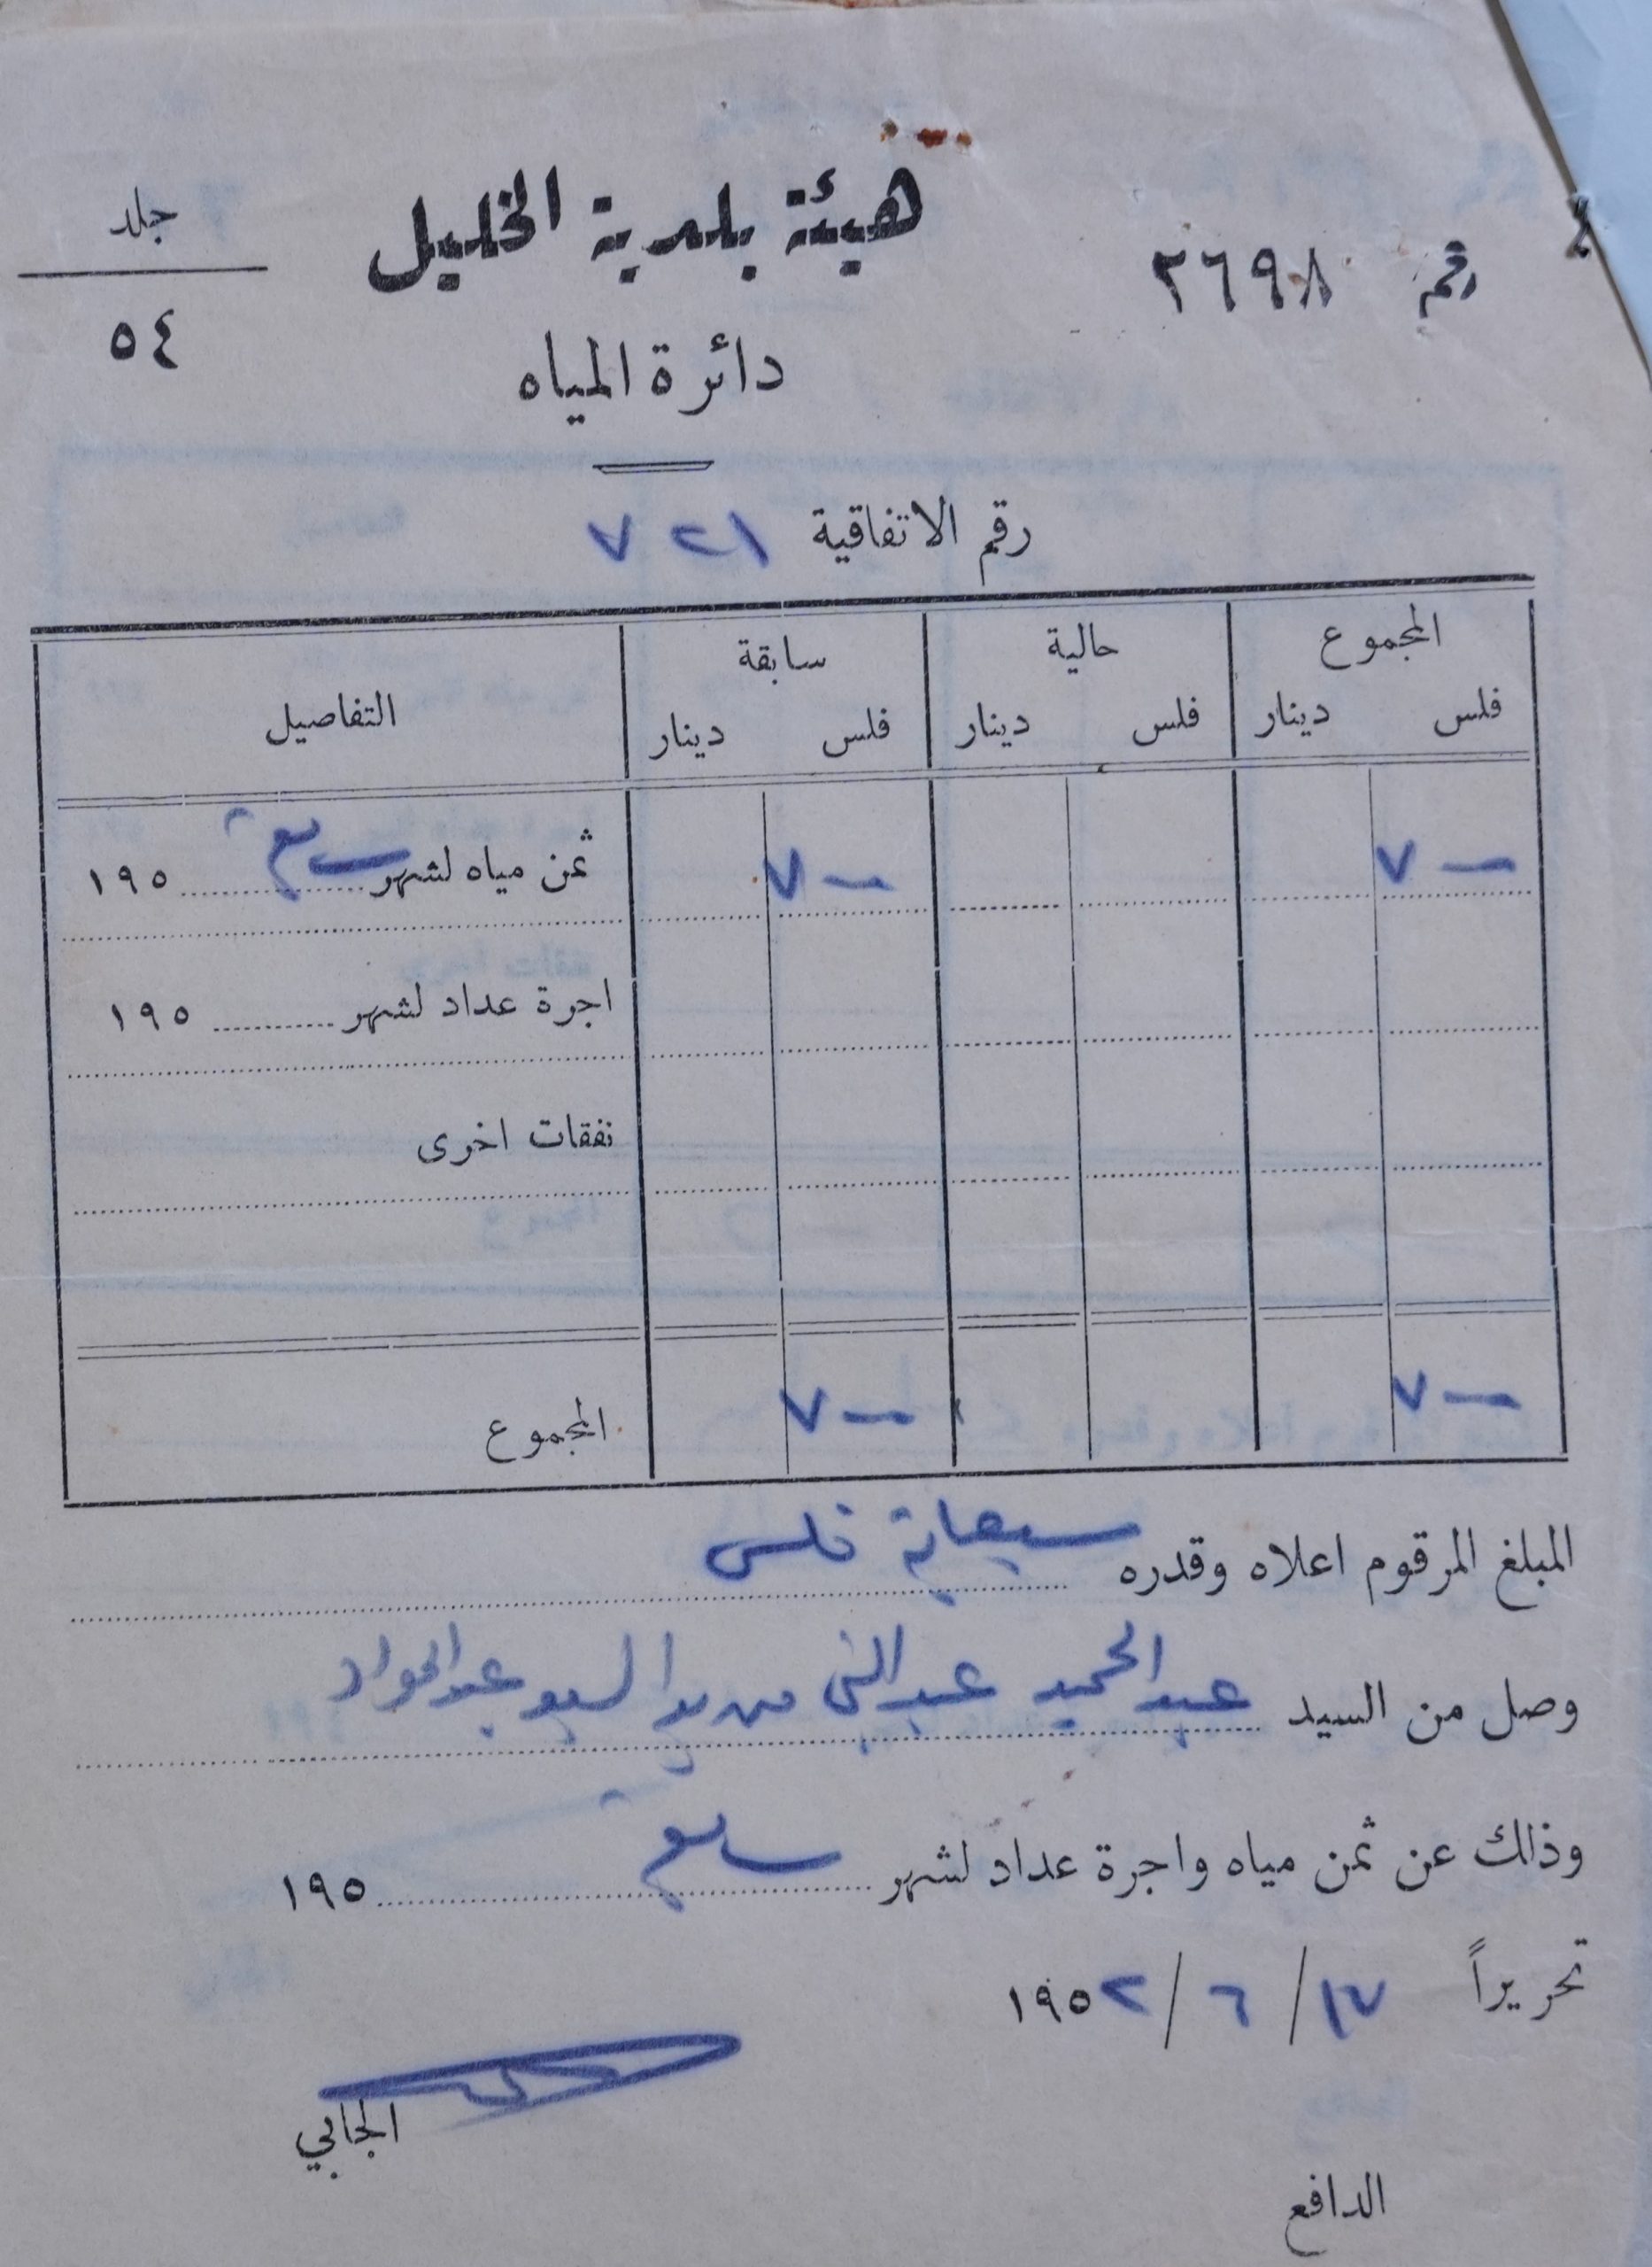 هيئة بلدية الخليل
رقم ٢٦٩٨
جلد
٥٤
دائرة المياه
رقم الاتفاقية ٧٢١
المجموع حالية سابقة التفاصيل
فلس دينار فلس دينار فلس دينار
٧٠٠ ٧٠٠ ثمن مياه لشهر ١٩٥
اجرة عداد لشهر ١٩٥
نفقات اخرى
٧٠٠ ٧٠٠ المجموع
المبلغ المرقوم اعلاه وقدره سبعماية فلس
وصل من السيد عبد الحميد عبد النبي عبد الجواد
وذلك عن ثمن مياه واجرة عداد لشهر ١٩٥
تحريراً ١٧ / ٦ / ١٩٥٢
الجابي
الدافع